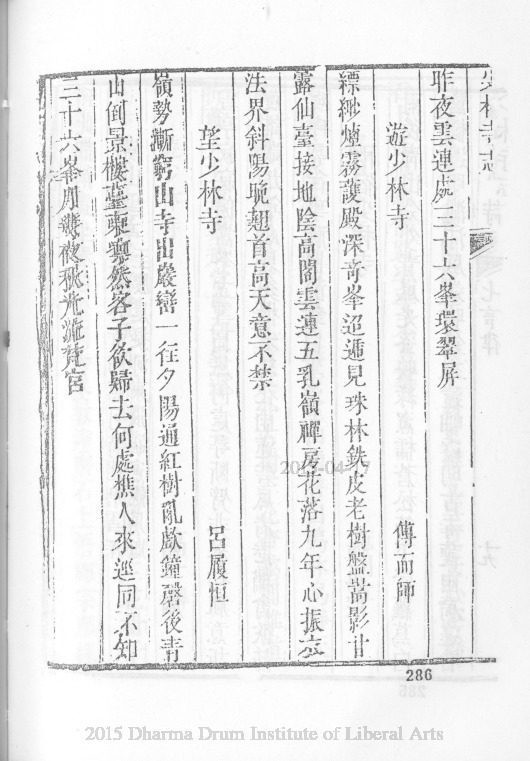 少林寺志
昨夜雲連處三十六峯環翠屏
遊少林寺 傅而師
縹緲煙霧護殿深奇峯迢遞見珠林鉄皮老樹盤嵩影甘
露仙臺接地陰高閣雲連五乳嶺禪房花落九年心振衣
法界斜陽晚翹首高天意不禁
望少林寺 呂履恒
嶺勢漸窮山寺出巖巒一徑夕陽通紅樹亂歇鐘磬後青
山倒景樓臺東寥然客子欲歸去何處樵人來逕同不知
三十六峯月幾夜秋光滿梵宮
286
2015 Dharma Drum Institute of Liberal Arts